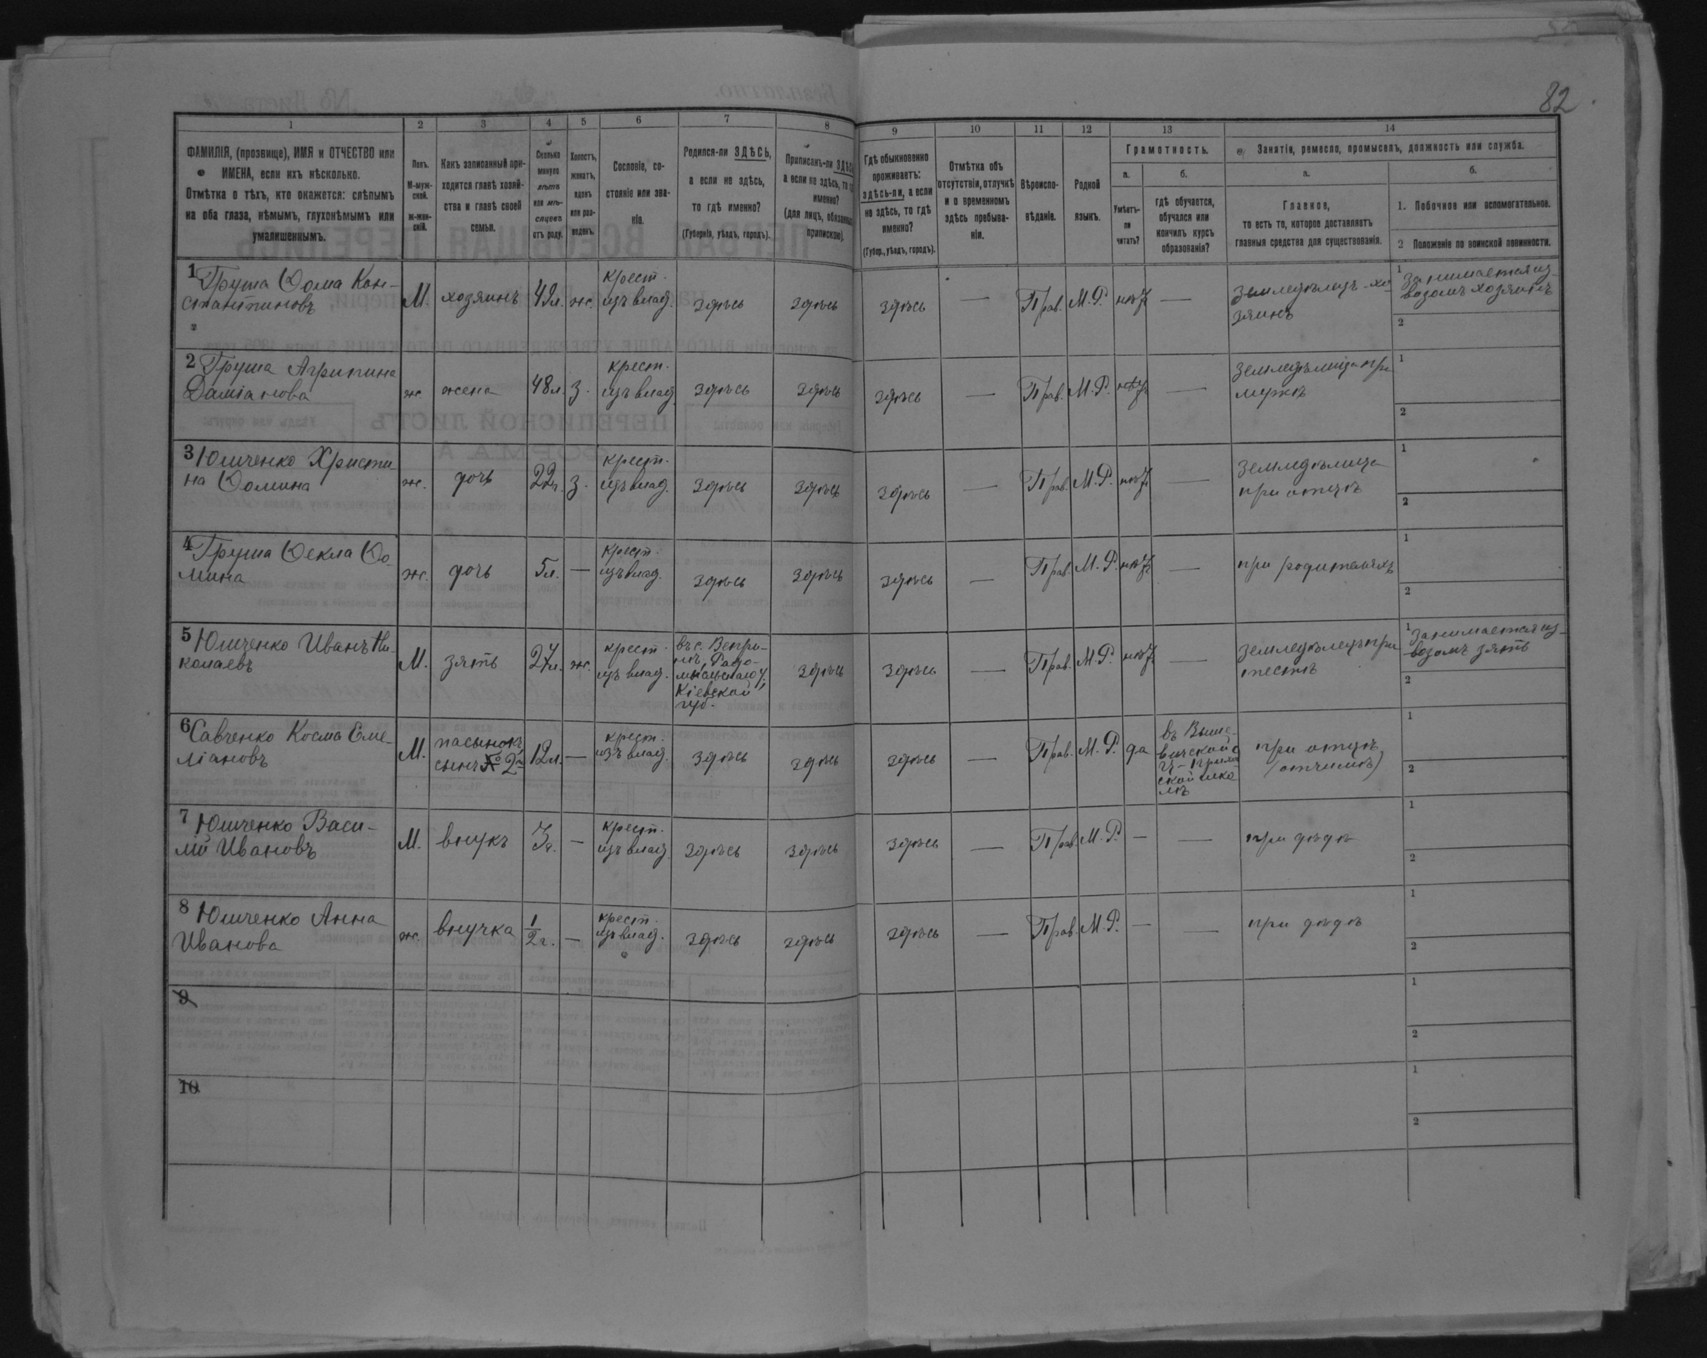 82
1 2 3 4 5 6 7 8 9 10 11 12 13 14
ФАМИЛІЯ, (прозвище), ИМЯ и ОТЧЕСТВО или
ИМЕНА, если ихъ нѣсколько.
Отмѣтка о тѣхъ, кто окажется: слѣпымъ
на оба глаза, нѣмымъ, глухонѣмымъ или
умалишеннымъ.
Полъ.
М-муж-
ской.
ж-жен-
скій.
Какъ записанный при-
ходится главѣ хозяй-
ства и главѣ своей
семьи.
Сколько
минуло
лѣтъ
или мѣ-
сяцевъ
отъ роду.
Холостъ,
женатъ,
вдовъ
или раз-
веденъ.
Сословіе, со-
стояніе или зва-
ніе.
Родился-ли ЗДѢСЬ,
а если не здѣсь,
то гдѣ именно?
(Губернія, уѣздъ, городъ).
Приписанъ-ли ЗДѢСЬ
а если не здѣсь, то гдѣ
именно?
(для лицъ, обязанныхъ
припискою).
Гдѣ обыкновенно
проживаетъ:
здѣсь-ли, а если
не здѣсь, то гдѣ
именно?
(Губер., уѣздъ, городъ).
Отмѣтка объ
отсутствіи, отлучкѣ
и о временномъ
здѣсь пребыва-
ніи.
Вѣроиспо-
вѣданіе.
Родной
языкъ.
Грамотность.
а.
Умѣетъ-
ли
читать?
б.
гдѣ обучается,
обучался или
кончилъ курсъ
образованія?
Занятіе, ремесло, промыселъ, должность или служба.
а.
Главное,
то есть то, которое доставляетъ
главныя средства для существованія.
б.
1. Побочное или вспомогательное.
2 Положеніе по воинской повинности.
1 Груша Ѳома Кон-
стантиновъ
М хозяинъ 49л. ж.
крест.
изъ влад.
здѣсь здѣсь здѣсь — Прав. М.Р. нѣтъ —
земледѣлецъ-хо-
зяинъ
1 занимается из-
возомъ хозяинъ
2
2 Груша Агрипина
Даміанова
ж жена 48л. з.
крест.
изъ влад.
здѣсь здѣсь здѣсь — Прав. М.Р. нѣтъ —
земледѣлица при
мужѣ
1
2
3 Юшченко Христи
на Ѳомина
ж. дочь 22л. з.
крест.
изъ влад.
здѣсь здѣсь здѣсь — Прав. М.Р. нѣтъ —
земледѣлица
при отцѣ
1
2
4 Груша Ѳекла Ѳо-
мина
ж. дочь 5л. —
крест.
изъ влад.
здѣсь здѣсь здѣсь — Прав. М.Р. нѣтъ —
при родителяхъ
1
2
5 Юшченко Иванъ Ни-
колаевъ
М. зять 27л. ж.
крест.
изъ влад.
въ с. Вепри-
нѣ, Радо-
мысльскаго у.
Кіевской
губ.
здѣсь здѣсь — Прав. М.Р. нѣтъ —
земледѣлецъ при
тестѣ
1 занимается из-
возомъ зять
2
6 Савченко Косма Еме-
ліановъ
М.
пасынокъ
сынъ № 2й
12л. —
крест.
изъ влад.
здѣсь здѣсь здѣсь — Прав. М.Р. да
при отцѣ
(отчимѣ)
1
2
7 Юшченко Васи-
лій Ивановъ
М. внукъ 3г. —
крест.
изъ влад.
здѣсь здѣсь здѣсь — Прав. М.Р. — —
при дѣдѣ
1
2
8 Юшченко Анна
Иванова
ж. внучка 1/2 г. —
крест.
изъ влад.
здѣсь здѣсь здѣсь — Прав. М.Р. — —
при дѣдѣ
1
2
9
1
2
10
1
2